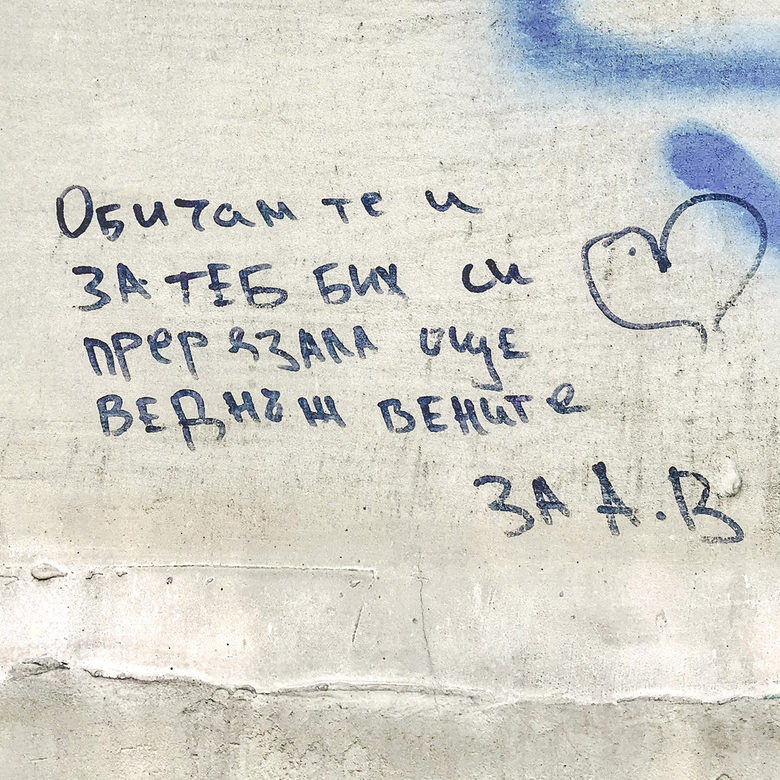 Обичам те и
ЗА ТЕБ БИХ си
прерязала още
ВЕДНЪЖ ВЕНИТЕ
ЗА А.В